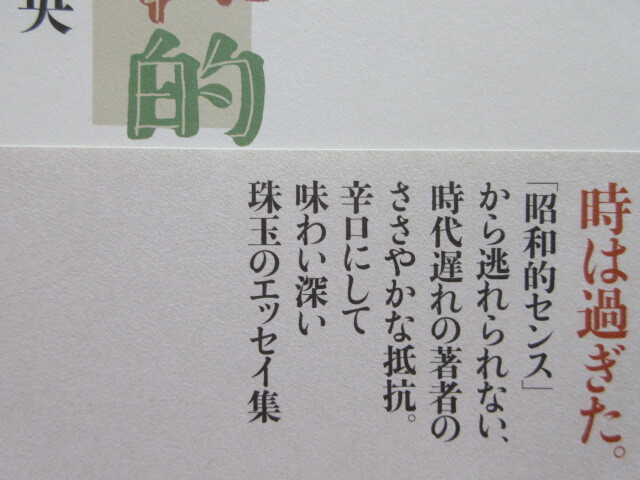 的
央
時は過ぎた。
「昭和的センス」
から逃れられない、
時代遅れの著者の
ささやかな抵抗。
辛口にして
味わい深い
珠玉のエッセイ集